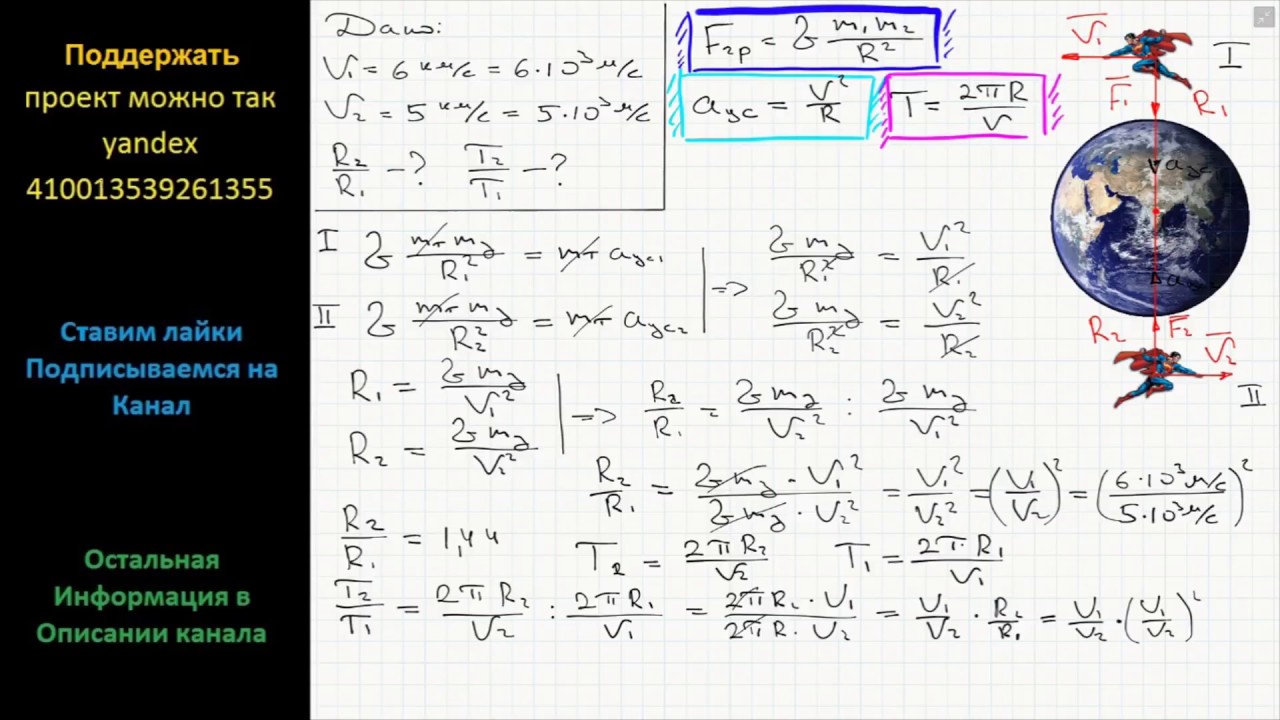 Поддержать
проект можно так
yandex
410013539261355
Ставим лайки
Подписываемся на
Канал
Остальная
Информация в
Описании канала
Дано:
V₁ = 6 км/с = 6·10³ м/с
V₂ = 5 км/с = 5·10³ м/с
R₂/R₁ - ? T₂/T₁ - ?
Fгр = G m₁m₂/R²
aцс = V²/R
T = 2πR/V
V₁ I
F₁ R₁
aцс
aцс
R₂ F₂ V₂
II
I G mт mз/R₁² = mт aцс₁ | => G mз/R₁² = V₁²/R₁
II G mт mз/R₂² = mт aцс₂ G mз/R₂² = V₂²/R₂
R₁ = G mз/V₁² | => R₂/R₁ = G mз/V₂² : G mз/V₁²
R₂ = G mз/V₂²
R₂/R₁ = G mз · V₁²/G mз · V₂² = V₁²/V₂² = (V₁/V₂)² = (6·10³ м/с/5·10³ м/с)²
R₂/R₁ = 1,44
T₂ = 2πR₂/V₂ T₁ = 2π·R₁/V₁
T₂/T₁ = 2πR₂/V₂ : 2πR₁/V₁ = 2πR₂·V₁/2πR·V₂ = V₁/V₂ · R₂/R₁ = V₁/V₂ · (V₁/V₂)²